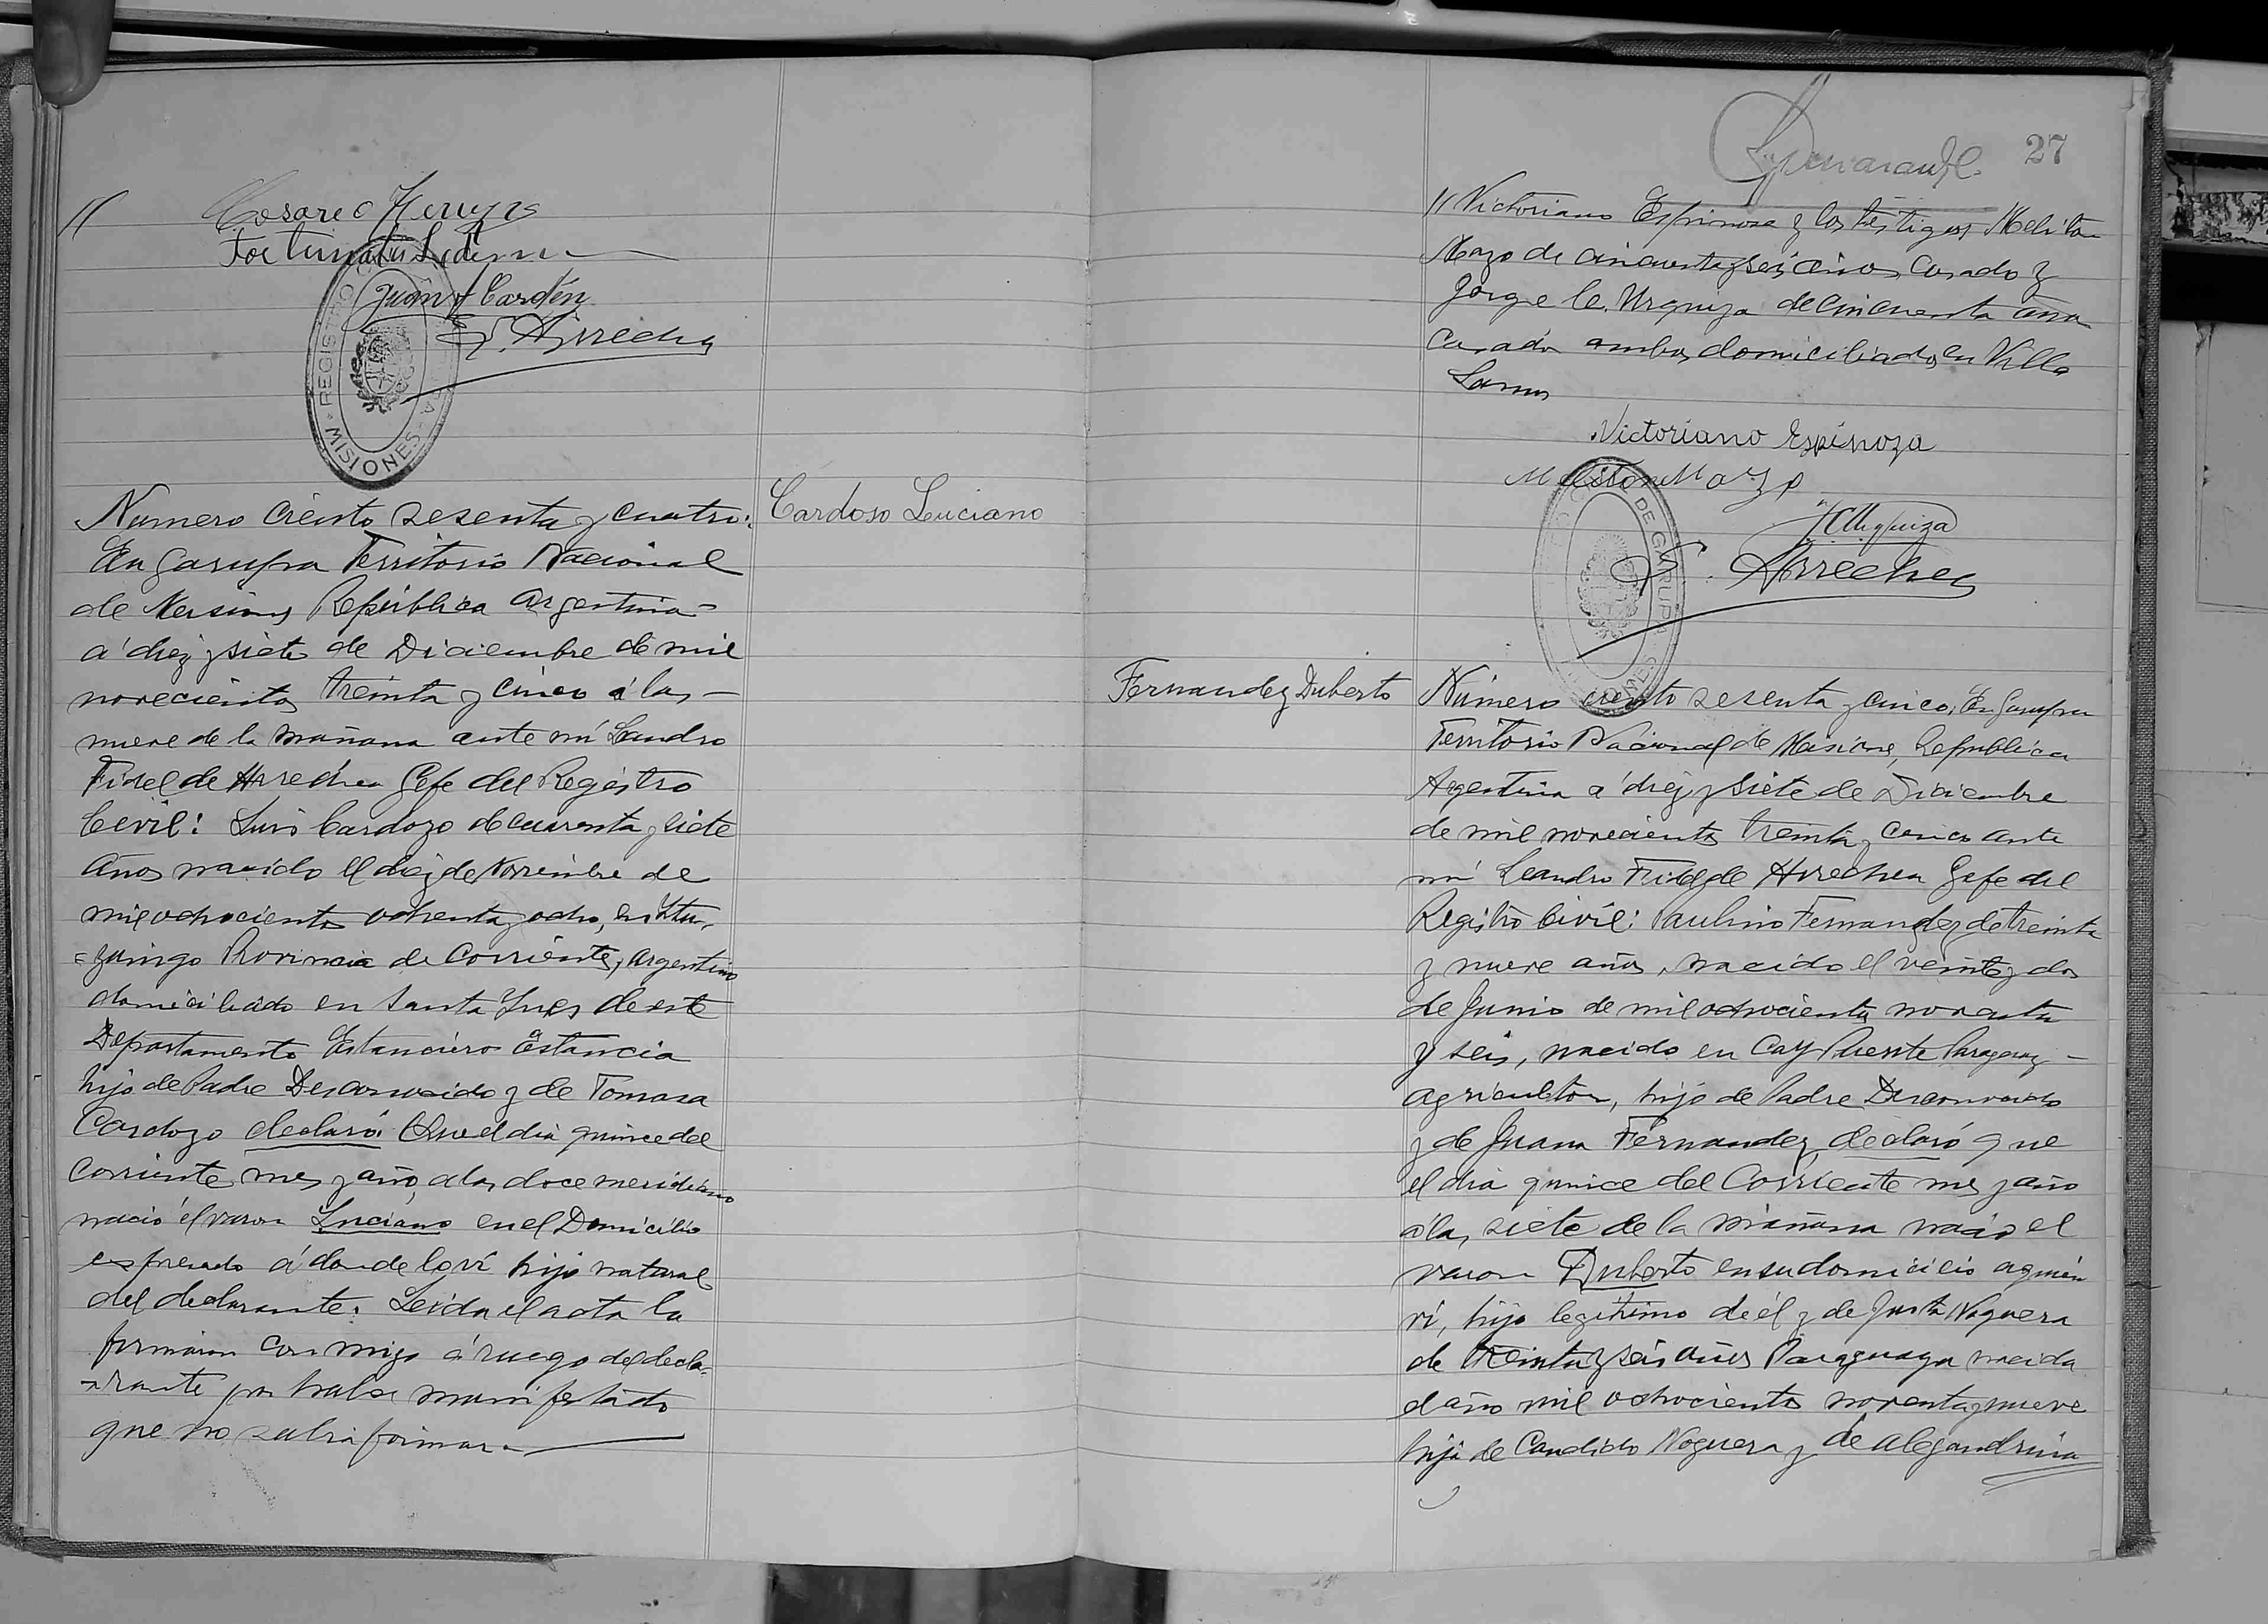 //
Fortunato Ledesma
Juan Cardén
F. Arrechea
REGISTRO
MISIONES
Numero ciento sesenta y cuatro:
Cardoso Luciano
En Garupa Territorio Nacional
de Misiones Republica Argentina
á diez y siete de Diciembre de mil
novecientos treinta y cinco á las
nueve de la mañana ante mí Leandro
Fidel de Arrechea Gefe del Registro
Civil: Luis Cardozo de cuarenta y siete
años nacido el diez de Noviembre de
mil ochocientos ochenta y ocho, en Itu-
=zaingo Provincia de Corrientes, argentino
domiciliado en Santa Ines de este
Departamento Estanciero Estancia
hijo de Padre Desconocido y de Tomasa
Cardozo declaró: Que el dia quince del
corriente mes y año, a las doce meridiano
nació el varon Luciano en el Domicilio
espresado á donde lo ví hijo natural
del declarante. Leida el acta la
firmaron con migo á ruego del decla-
-rante por haber manifestado
que no sabia firmar
27
// Victoriano Espinosa y los testigos Meliton
Mazo de cincuenta y seis años casado y
Jorge C. Urquiza de cincuenta años
casado ambos domiciliados en Villa
Lanus
Victoriano Espinoza
Meliton Mazo
J C Urquiza
F. Arrechea
DE GARUPA
Fernandez Duberto
Número ciento sesenta y cinco, En Garupa
Territorio Nacional de Misiones, Republica
Argentina á diez y siete de Diciembre
de mil novecientos treinta y cinco ante
mí Leandro Fidel de Arrechea Gefe del
Registro Civil: Paulino Fernandez de treinta
y nueve años, nacido el veinte y dos
de Junio de mil ochocientos noventa
y seis, nacido en Cay Puente Paraguay
agricultor, hijo de Padre Desconocido
y de Juana Fernandez, declaró que
el dia quince del Corriente mes y año
á las siete de la mañana nació el
varon Duberto en su domicilio aquien
ví, hijo legítimo de él y de Justa Noguera
de treinta y seis años Paraguaya nacida
el año mil ochocientos noventa y nueve
hija de Candido Noguera y de Alejandrina